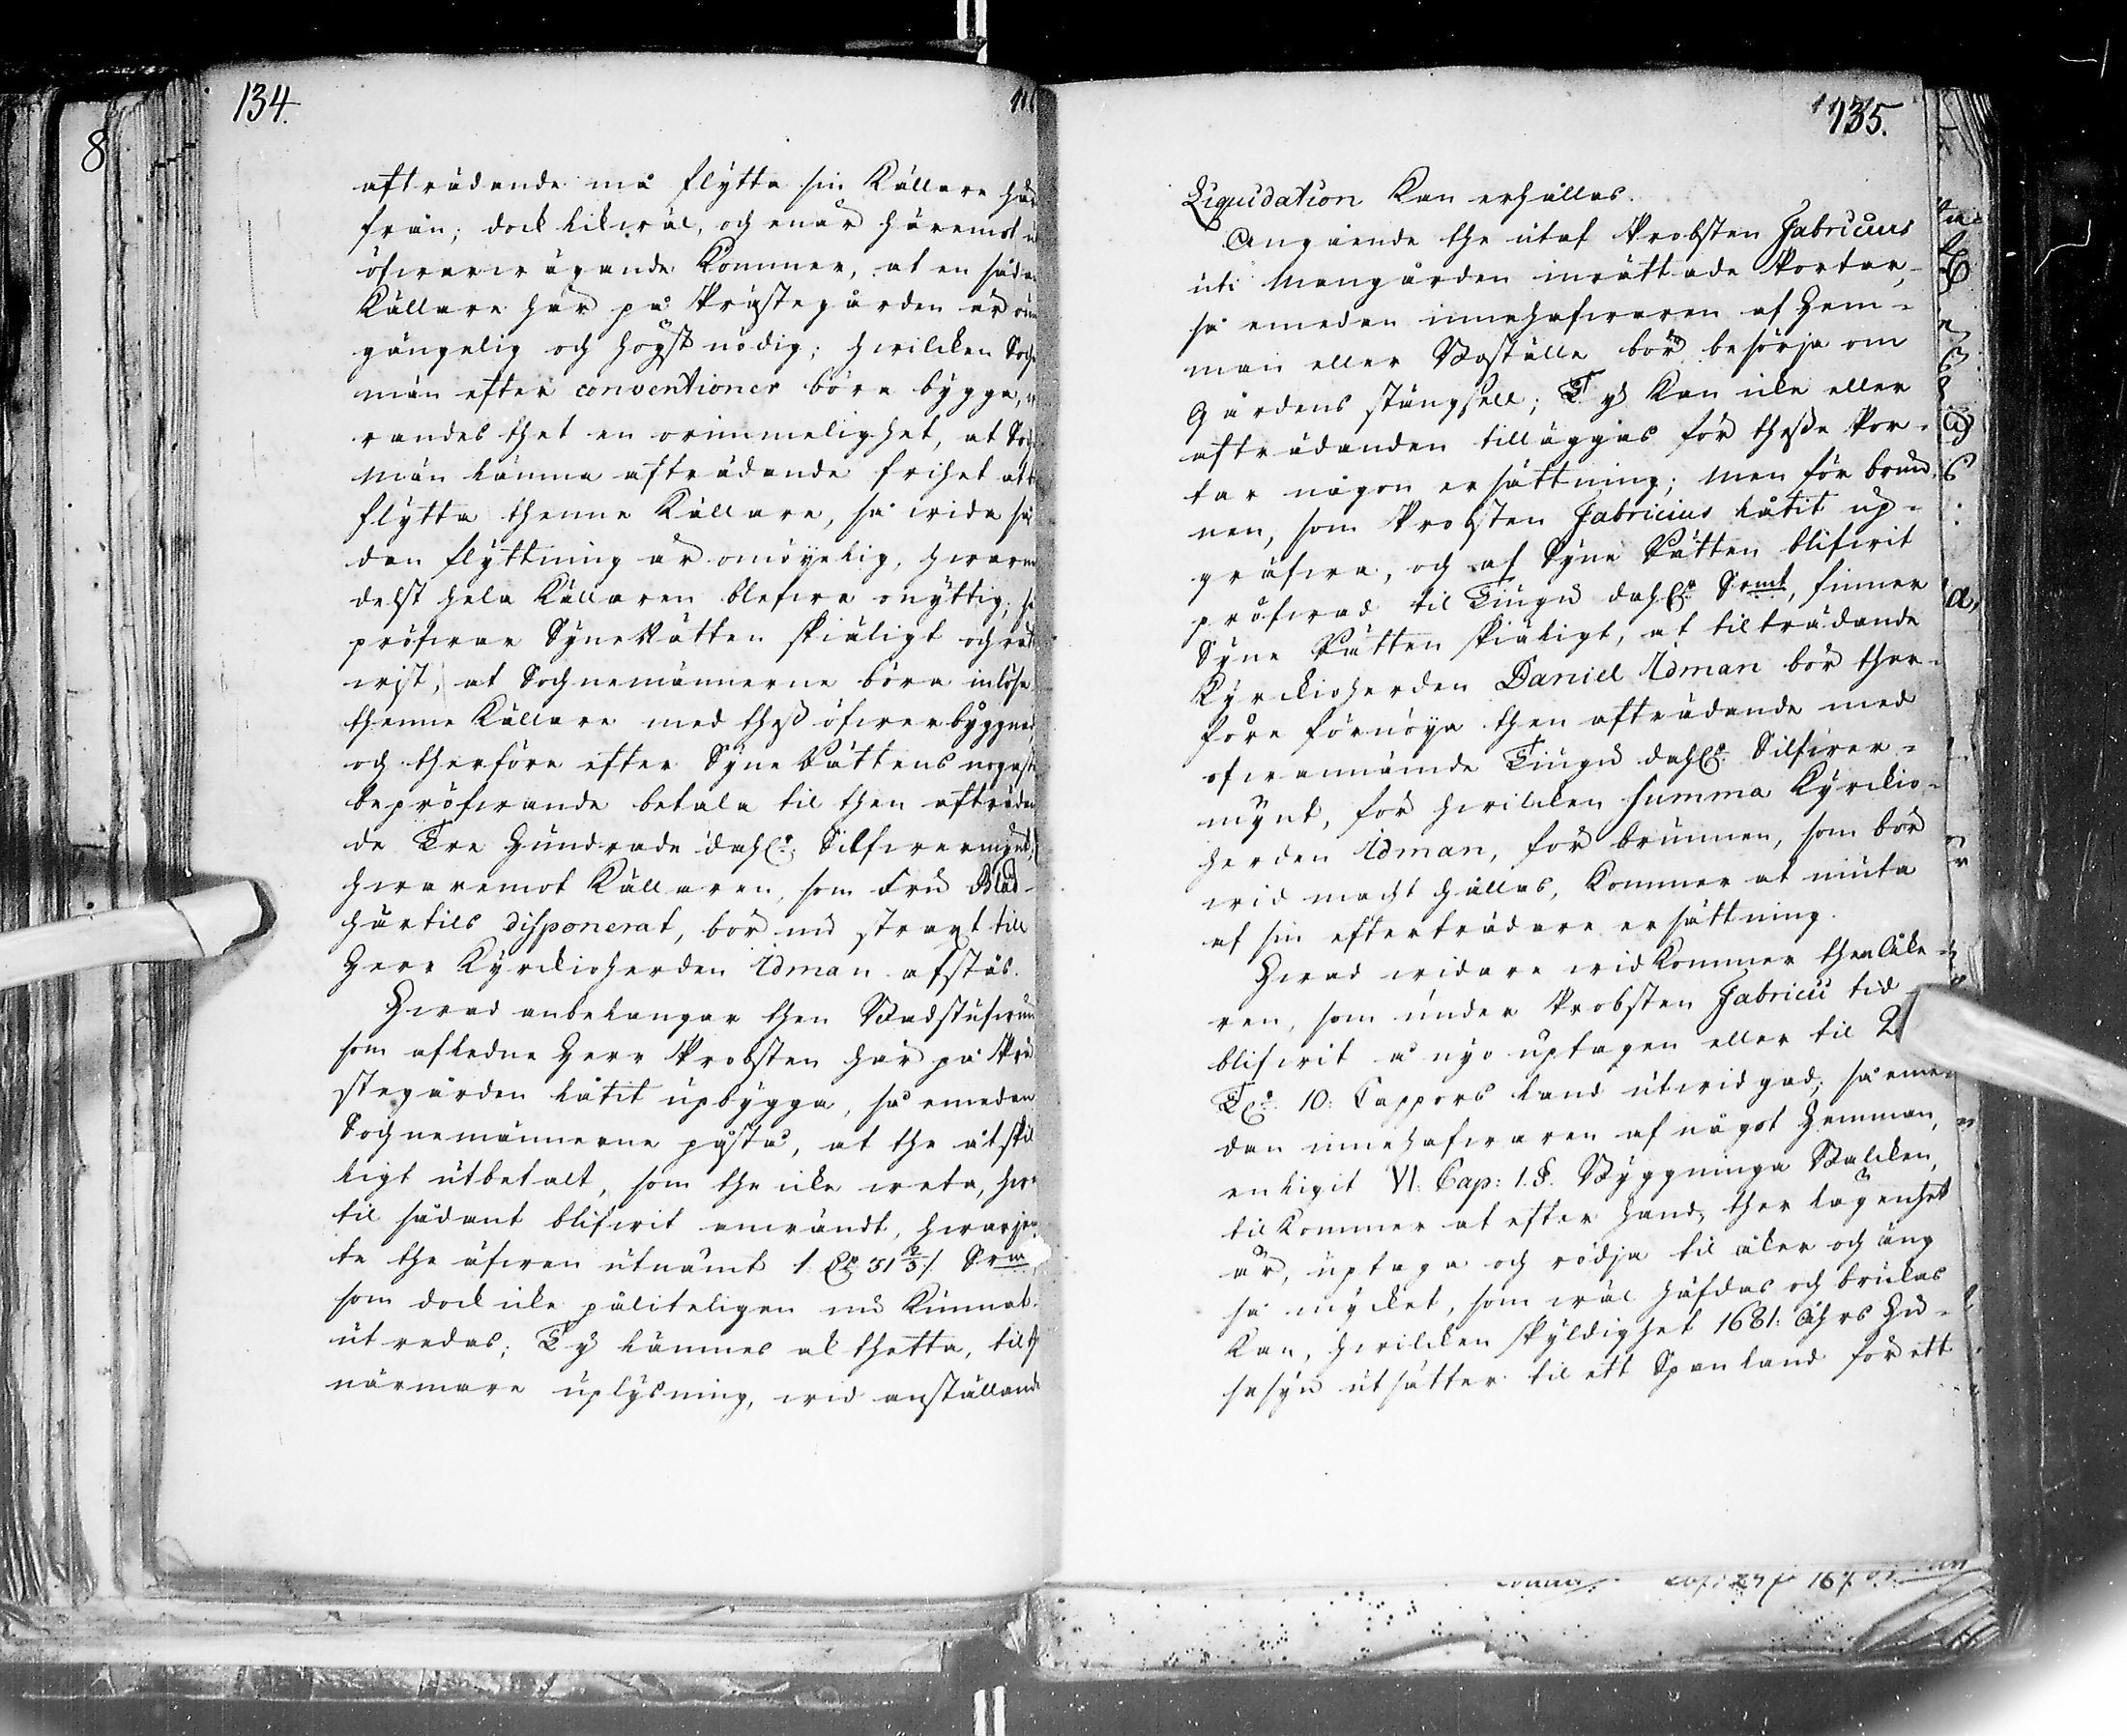 134.
8
afträdande må flytta sin Källare här
ifrån; dock likwäl, och enär häremot i
öfwerwägande kommer, at en sådan
Källare här på Prästegården är
gängelig och högst nödig; hwilcken Sochn
män efter conventioner böra bygga,
randes thet en orimmelighet, at Sochn
män lämna afträdande frihet att
flytta thenna Källare, så wida så
dan flyttning är omöyelig, hwarme
delst hela Källaren blefwe onyttig;
pröfwar SyneRätten skiäligt och rätt
wist, at Sochnemännerne böra inlösa
thenna Källare med thess öfwerbyggnad,
och therföre efter SyneRättens nogaste
bepröfwande betala til then afträdan
de Tre Hundrade dahl:r Silfwermynt,
hwaremot Källaren, som Fru Blad
härtils disponerat, bör nu straxt till
Herr Kyrckioherden Idman afstås.
Hwad anbelangar then Badstufwun
som afledne Herr Probsten här på Prä
stegården låtit upbygga, så emedan
Sochnemännerne påstå, at the åtskil
ligt utbetalt, som the icke weta, hwar
til sådant blifwit anwändt, hwarjem
te the äfwen utnämt 1 51 2/5 Srm
som dock icke påliteligen nu kunnat
utredas; Ty lämnes alt thetta, til
närmare uplysning, wid anställande
135.
Liquidation kan erhållas.
Angående the utaf Probsten Fabricius
uti Mangården inrättade Portar,
så emedan innehafwaren af Hem-
man eller Boställe bör besörja om
Gårdens stängsell; Ty kan icke eller
afträdanden tilläggas för thesse Por-
tar någon ersättning; men för brun-
nen, som Probsten Fabricius låtit up-
gräfwa, och af Syne Rätten blifwit
pröfwad til Tiugu dahl:r Srmt, finner
Syne Rätten skiäligt, at tilträdande
Kyrckioherden Daniel Idman bör ther-
före förnöya then afträdande med
ofwannämde Tiugu dahl:r Silfwer-
mynt, för hwilcken summa Kyrckio-
herden Idman, för brunnen, som bör
wid macht hållas, kommer at niuta
af sin efterträdare ersättning.
Hwad widare widkommer then Åke-
ren, som under Probsten Fabricii tid
blifwit å nyo uptagen eller til 2
T:r 10: Cappors land utwidgad; så eme-
dan innehafwaren af något Hemman,
enligit VI. Cap: 1. §. Byggninga Balcken,
tilkommer at efter hand, ther lägenhet
är, uptaga och rödja til åker och äng
så mycket, som wäl häfdas och brukas
kan, hwilcken skyldighet 1681: Åhrs Hu-
sesyn utsätter til ett Spanland för ett